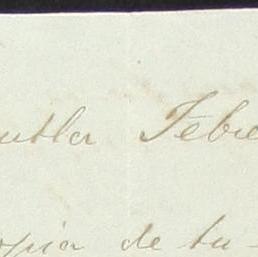 utla Febre
opia de tu